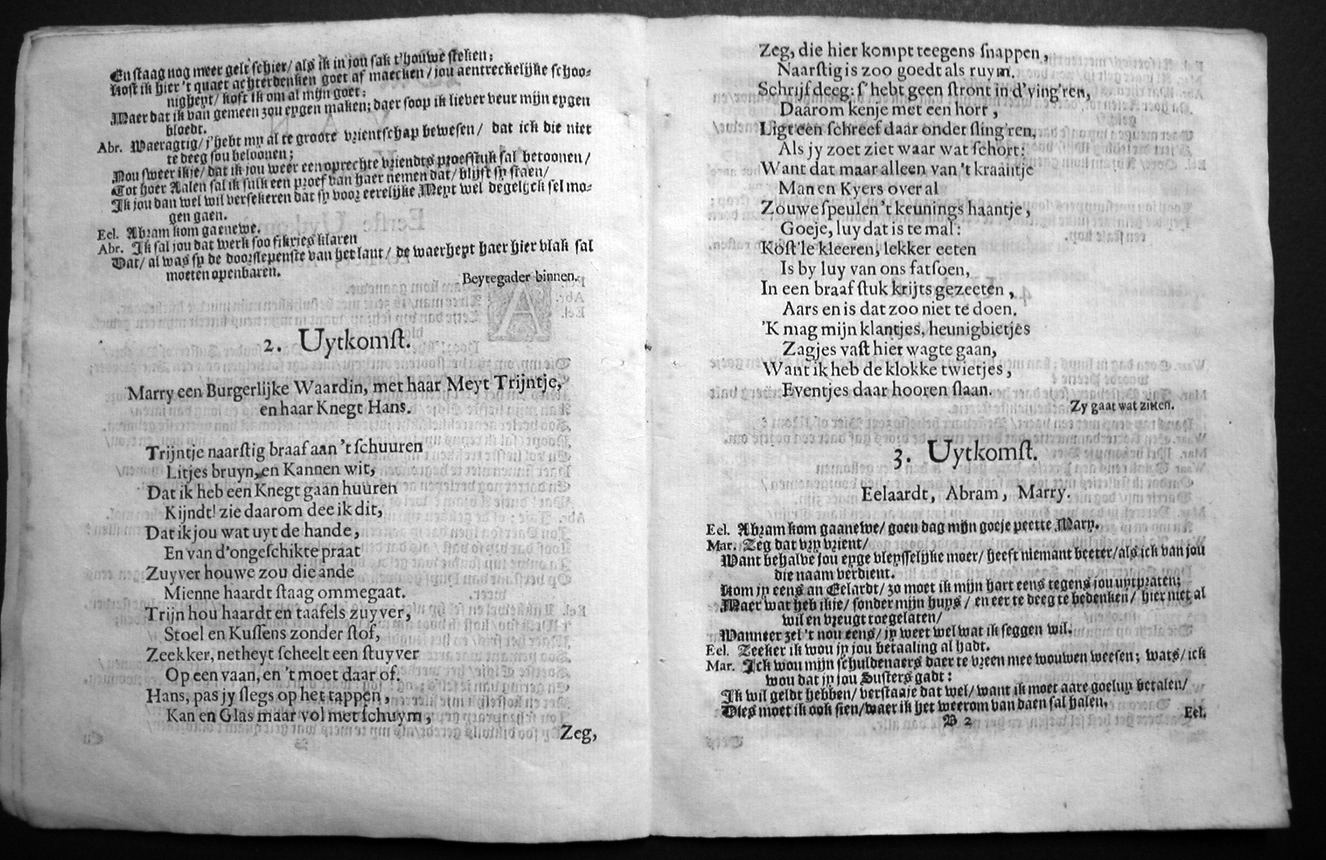 En staag nog meer gelt schier/ als ik in jou sak t'houwe steken;
Kost ik hier 't quaet achterdenken goet af maecken/ jou aentreckelijke schoo-
nigheyt/ kost ik om al mijn goet:
Maer dat ik van gemeen zou eygen maken; daer soop ik liever veur mijn eygen
bloedt.
Abr. Waeragtig/ j'hebt my al te groote vrientschap bewesen/ dat ik die niet
te deeg sou beloonen;
Nou sweer ikje/ dat ik jou weer een oprechte vriendts proefstuk sal betoonen/
Tot hoer Aalen sal ik sulk een proef van haer nemen dat/ blijft sy staen/
Ik jou dan wel wil versekeren dat sy voor eerelijke Meyt wel degelijck sel mo-
gen gaen.
Eel. Abram kom gaenewe.
Abr. Ik sal jou dat werk soo fikries klaren
Dat/ al was sy de doorslepenste van het lant/ de waerheyt haer hier vlak sal
moeten openbaren.
Beytegader binnen.
2. Uytkomſt.
Marry een Burgerlijke Waardin, met haar Meyt Trijntje,
en haar Knegt Hans.
Trijntje naarſtig braaf aan 't ſchuuren
Litjes bruyn, en Kannen wit,
Dat ik heb een Knegt gaan huuren
Kijndt! zie daarom dee ik dit,
Dat ik jou wat uyt de hande,
En van d'ongeſchikte praat
Zuyver houwe zou die ande
Mienne haardt ſtaag ommegaat.
Trijn hou haardt en taafels zuyver,
Stoel en Kuſſens zonder ſtof,
Zeekker, netheyt ſcheelt een ſtuyver
Op een vaan, en 't moet daar of.
Hans, pas jy ſlegs op het tappen,
Kan en Glas maar vol met ſchuym,
Zeg,
Zeg, die hier kompt teegens ſnappen,
Naarſtig is zoo goedt als ruym.
Schrijf deeg: ſ'hebt geen ſtront in d'ving'ren,
Daarom kenje met een hort,
Ligt een ſchreef daar onder ſling'ren,
Als jy zoet ziet waar wat ſchort:
Want dat maar alleen van 't kraantje
Man en Kyers over al
Zouwe ſpeulen 't keunings haantje,
Goeje, luy dat is te mal:
Koſt'le kleeren, lekker eeten
Is by luy van ons fatſoen,
In een braaf ſtuk krijts gezeeten,
Aars en is dat zoo niet te doen.
'K mag mijn klantjes, heunigbietjes
Zagjes vaſt hier wagte gaan,
Want ik heb de klokke twietjes,
Eventjes daar hooren ſlaan.
Zy gaat wat zitten.
3. Uytkomſt.
Eelaardt, Abram, Marry.
Eel. Abram kom gaanewe/ goen dag mijn goeje peette Mary.
Mar. Zeg dat vry vrient/
Want behalve jou eyge vleysselijke moer/ heeft niemant beeter/ als ick van jou
die naam verdient.
Kom jy eens an Eelardt/ zo moet ik mijn hart eens tegens jou uytpraten;
Maer wat heb ikje/ sonder mijn huys/ en eer te deeg te bedenken/ hier niet al
wil en vreugt toegelaten/
Wanneer zel 't nou eens/ jy weet wel wat ik seggen wil.
Eel. Zeeker ik wou jy jou betaaling al hadt.
Mar. Ick wou mijn schuldenaers daer te vreen mee wouwen weesen; wats/ ick
wou dat jy jou Susters gadt:
Ik wil geldt hebben/ verstaaje dat wel/ want ik moet aare goeluy betalen/
Dies moet ik ook sien/ waer ik het weerom van daen sal halen.
B 2
Eel.